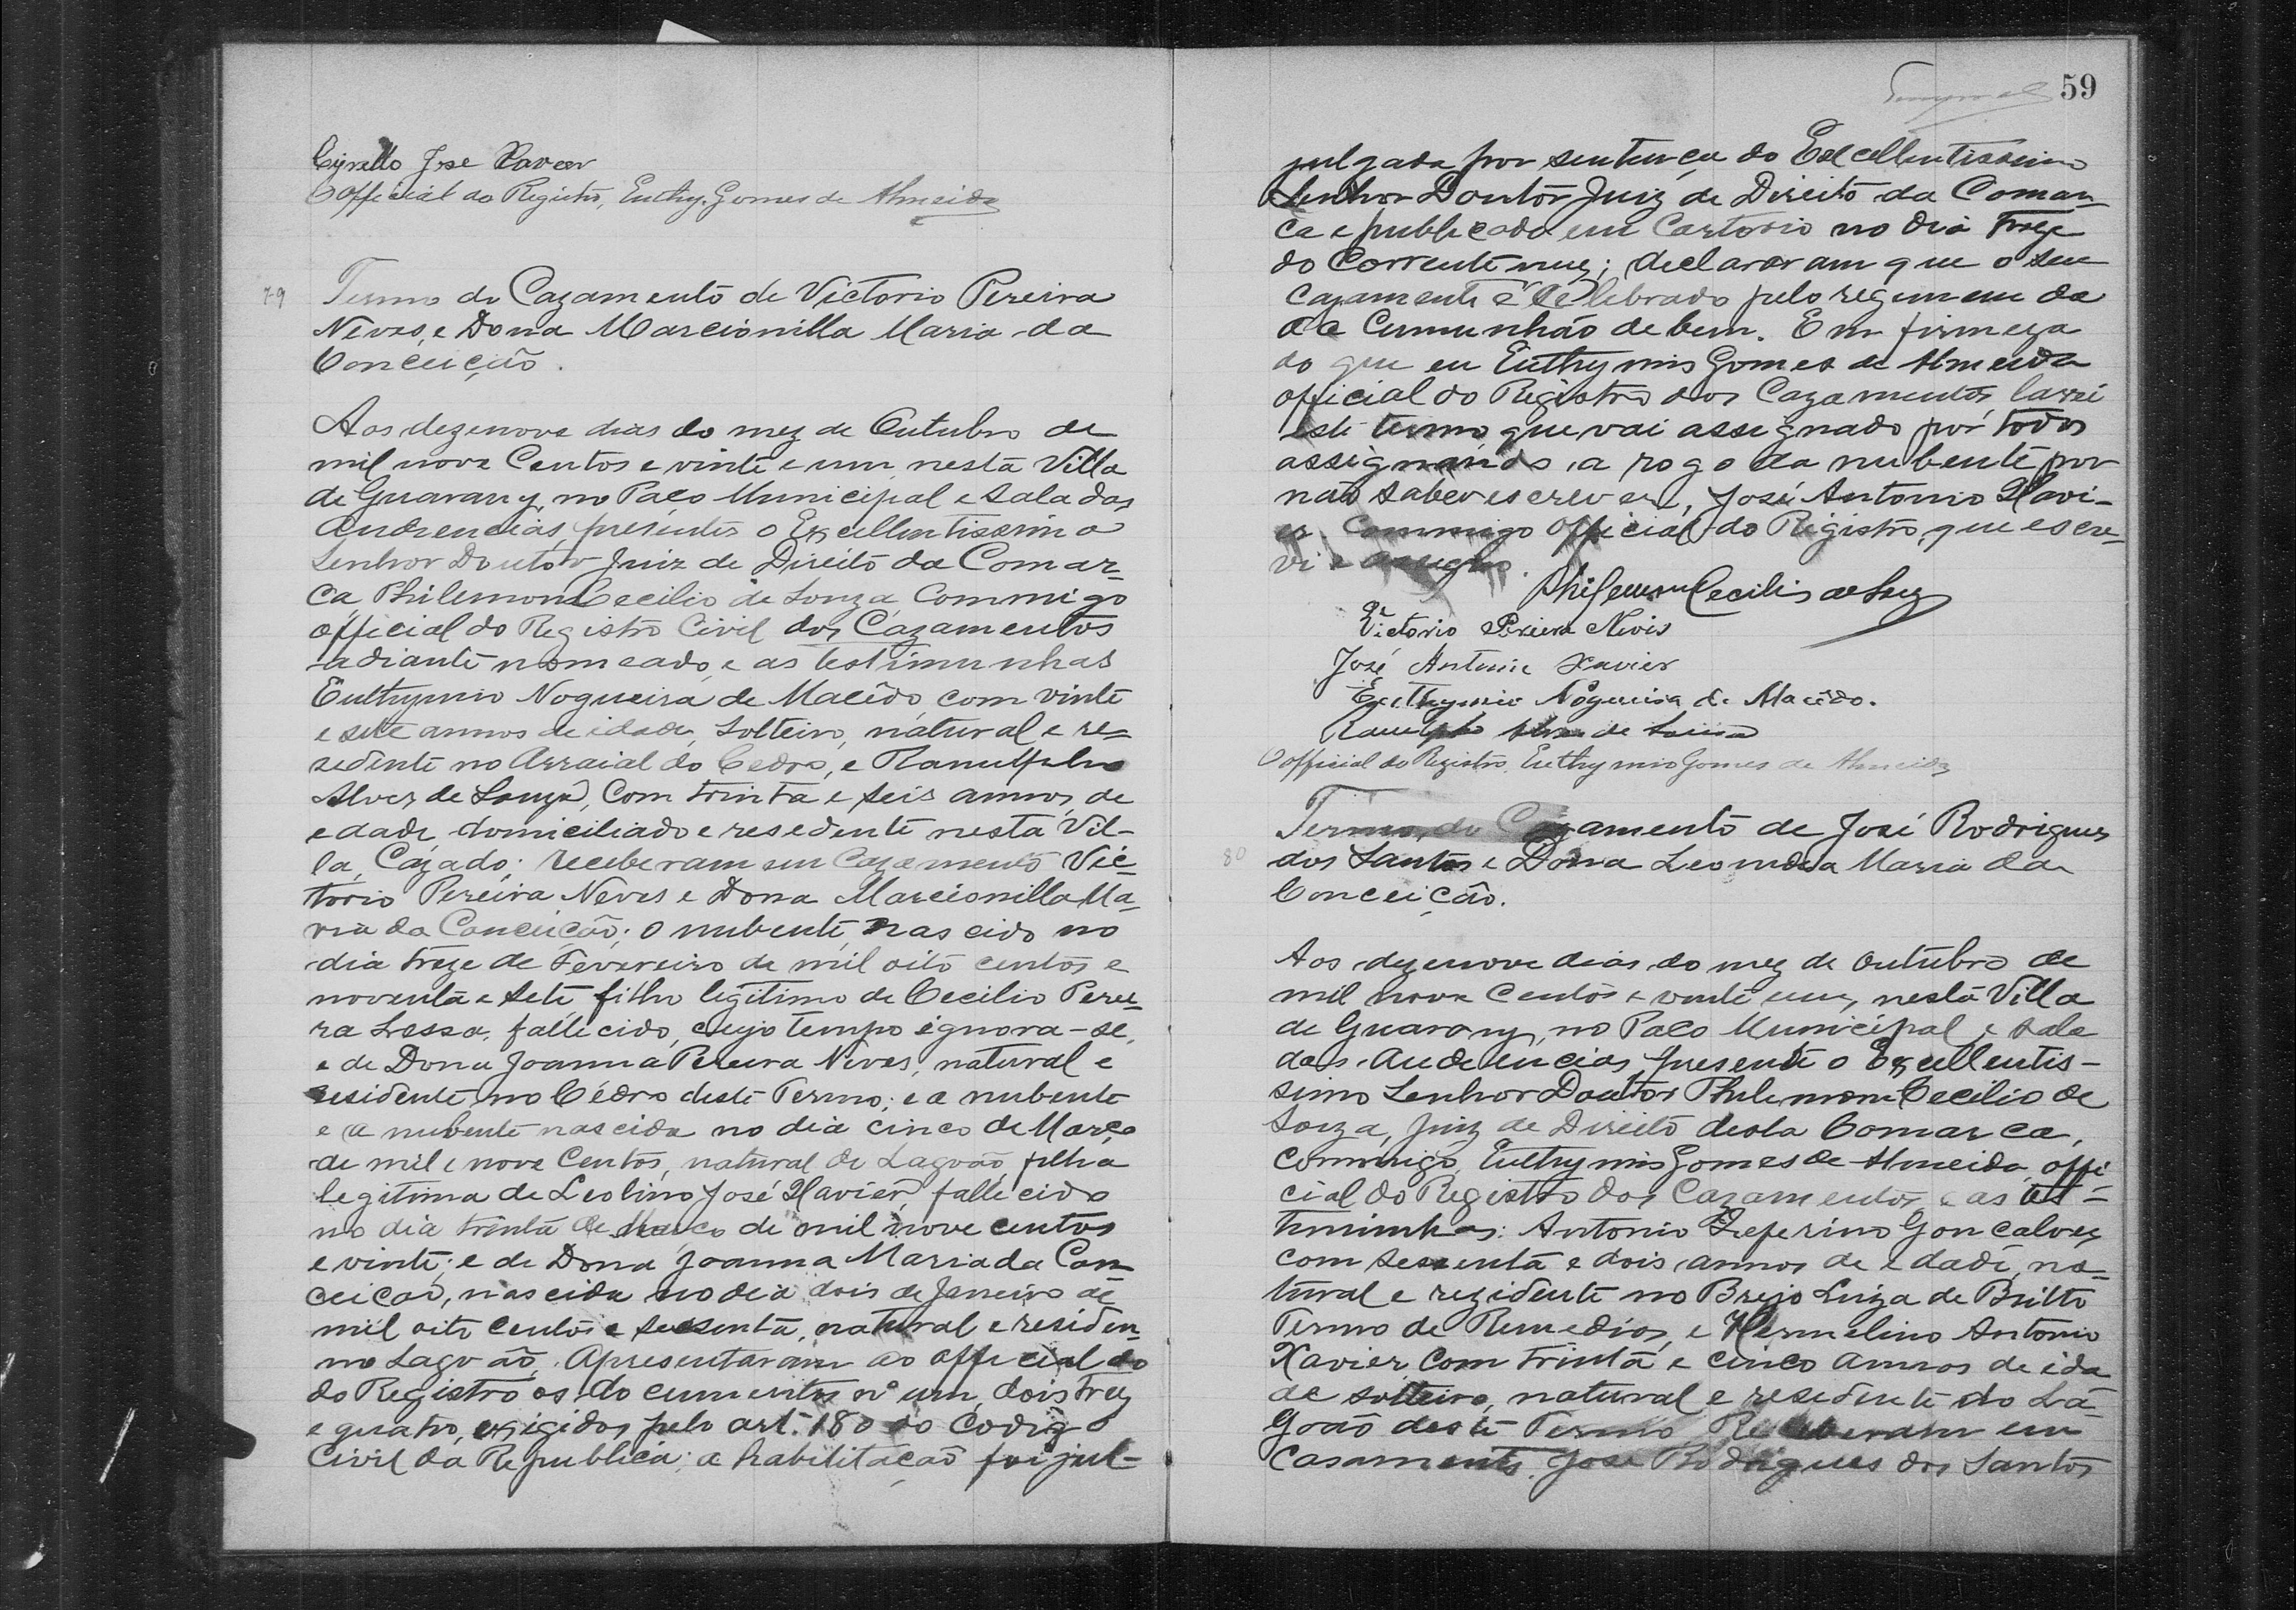 Cyrillo Jose Xavier
O Official do Registro, Euthy. Gomes de Almeida
79
Termo do Cazamento de Victorio Pereira
Neves, e Dona Marcionilla Maria da
Conceição.
Aos dezenove dias do mez de Outubro de
mil nove Centos e vinte e um nesta Villa
de Guarany, no Paço Municipal e sala das
Audiencias, presentes o Excellentissimo
Senhor Doutor Juiz de Direito da Comar-
ca Philemon Cecilio de Souza, Commigo
official do Registro Civil dos Cazamentos
adiante nomeado, e as testimunhas
Euthymio Nogueira de Macêdo, com vinte
e sete annos de idade, solteiro, natural e re=
sedente no Arraial do Cedro, e Ranulpho
Alves de Souza, Com trinta e seis annos de
edade, domiciliado e resedente nesta Vil-
la, Cazado; receberam em Cazamento Vic-
torio Pereira Neves e Dona Marcionilla Ma-
ria da Conceição; O nubente, nascido no
dia treze de Fevereiro de mil oito centos e
noventa e sete filho legitimo de Cecilio Perei-
ra Lessa, fallecido, cujo tempo ignora-se,
e de Dona Joanna Pereira Neves, natural e
residente, no Cédro deste Termo; e a nubente
e a nubente nascida no dia cinco de Março
de mil e nove Centos, natural de Lagoão, filha
legitima de Leolino José Xavier, fallecido
no dia trinta de Março de mil nove centos
e vinte; e de Dona Joanna Maria da Con
ceição, nascida no dia dois de Janeiro de
mil oito centos e sessenta, natural e residen-
no Lagoão. Apresentaram ao official do
do Registro os documentos nº um, dois, trez
e quatro, exigidos pelo art. 180 do Codigo
Civil da Republica; a habilitação foi jul-
59
julgada por sentença do Excellentissimo
Senhor Doutor Juiz de Direito da Comar-
ca e publicado em Cartorio no dia treze
do Corrente mez; declararam que o seu
Cazamento é celebrado pelo regimem da
da Cumunhão de bem. Em firmeza
do que eu Euthymio Gomes de Almeida
official do Registro dos Cazamentos, lavrei
este termo, que vai assignado por todos
assignando, a rogo da nubente por
não saber escrever, José Antonio Xavi-
er, Commigo Official do Registro, que escre-
vi e assigno.
Philemon Cecilio de Souza
Victorio Pereira Nevis
José Antonio Xavier
Euthymio Nogueira de Macêdo.
Ranulpho Alves de Souza
O official do Registro, Euthymio Gomes de Almeida
80
Termo do Cazamento de José Rodrigues
dos Santos e Dona Leonidia Maria da
Conceição.
Aos dezenove dias do mez de outubro de
mil nove Centos e vinte um, nesta Villa
de Guarany, no Paço Municipal e sala
das Audiencias, presente o Excellentis-
simo Senhor Doutor Philemon Cecilio de
Souza, Juiz de Direito desta Comarca,
commigo, Euthymio Gomes de Almeida, offi-
cial do Registro dos Cazamentos, e as tes-
timunhas: Antonio Zeferino Gonçalves
com sessenta e dois annos de edade, na-
tural e rezidente no Brejo Luiza de Britto
Termo de Remedios, e Hermelino Antonio
Xavier Com trinta e cinco annos de ida
de solteiro, natural e resedente do La-
goão deste Termo Receberam em
Casamento, José Rodrigues dos Santos